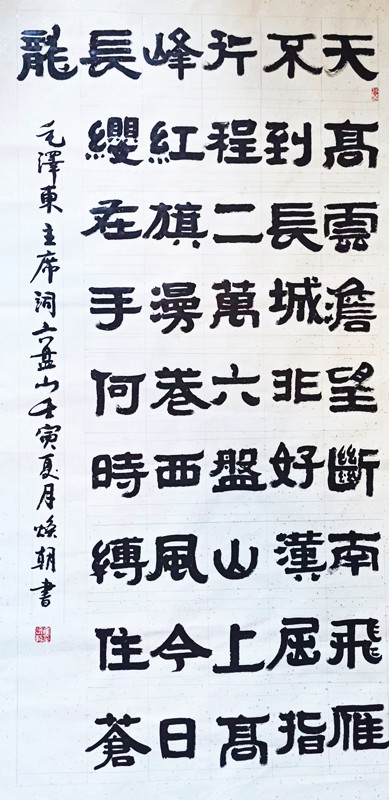 天高雲澹望斷南飛雁
不到長城非好漢屈指
行程二萬六盤山上高
峰紅旗漫卷西風今日
長纓在手何時縛住蒼
龍
毛澤東主席詞六盤山壬寅夏月煥朝書